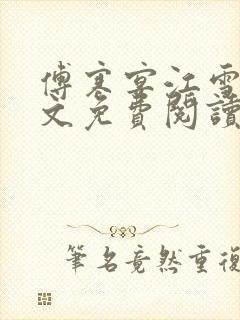 傅寒宴江雪
文免費閱讀
筆名竟然重復